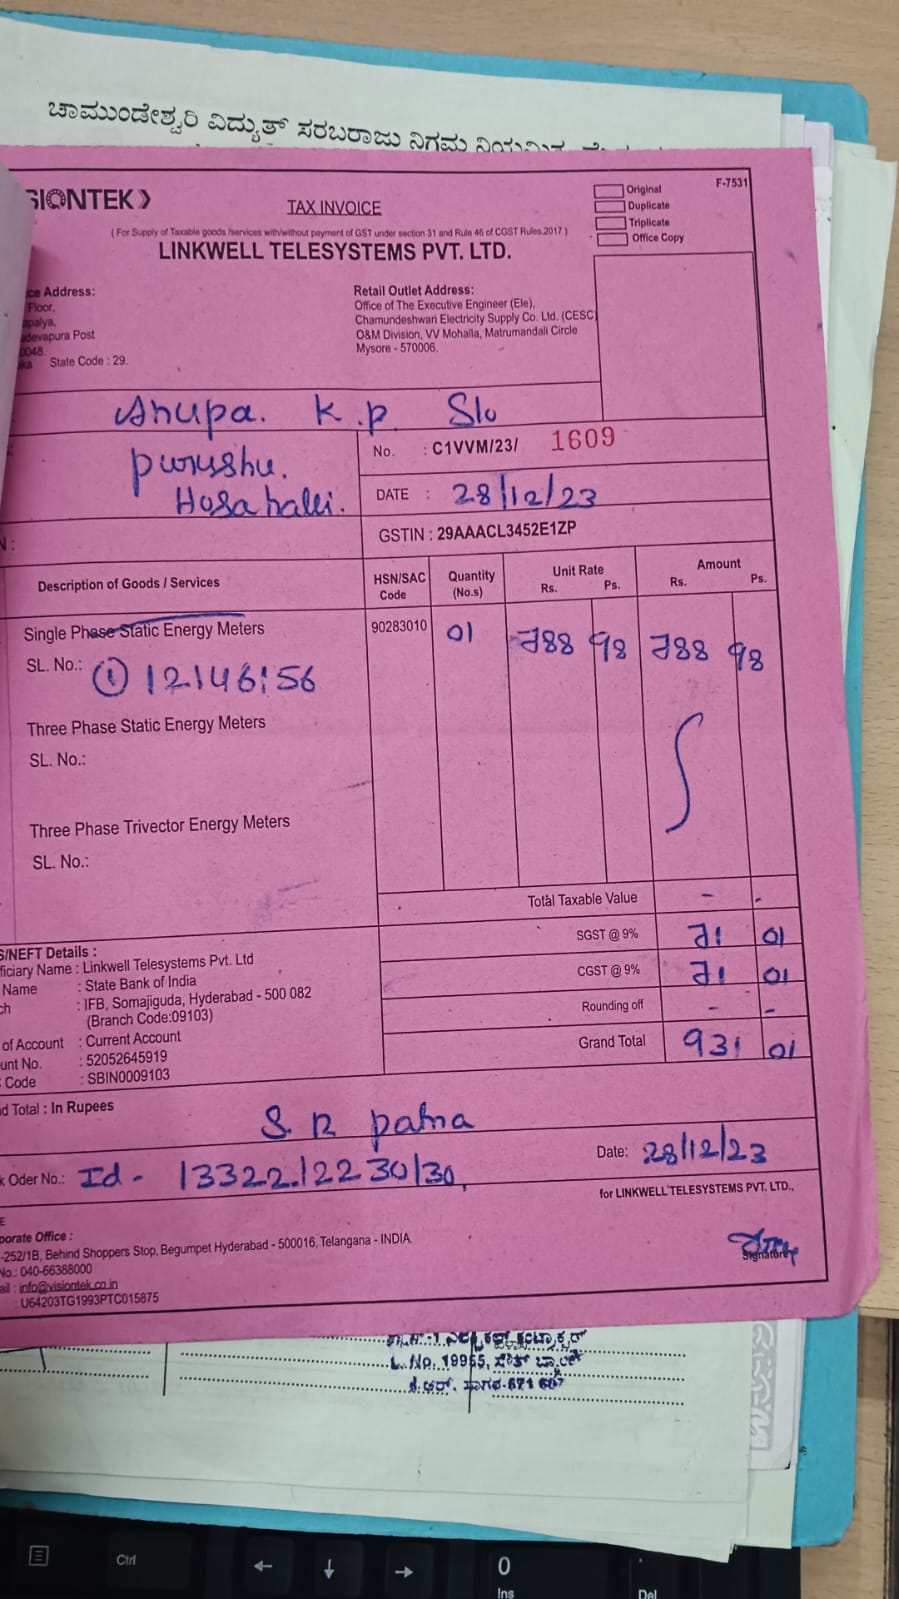 ಚಾಮುಂಡೇಶ್ವರಿ ವಿದ್ಯುತ್ ಸರಬರಾಜು ನಿಗಮ
SIONTEK
TAX INVOICE
Original
F-7531
Duplicate
Triplicate
Office Copy
( For Supply of Taxable goods /services with/without payment of GST under section 31 and Rule 46 of CGST Rules.2017 )
LINKWELL TELESYSTEMS PVT. LTD.
ce Address:
Floor,
apalya,
adevapura Post
0048.
ka State Code : 29.
Retail Outlet Address:
Office of The Executive Engineer (Ele),
Chamundeshwari Electricity Supply Co. Ltd. (CESC)
O&M Division, VV Mohalla, Matrumandali Circle
Mysore - 570006.
Anupa. K.P. S/o
Purushu.
Hosahalli.
No. : C1VVM/23/ 1609
DATE : 28/12/23
GSTIN : 29AAACL3452E1ZP
Description of Goods / Services
HSN/SAC Code
Quantity (No.s)
Unit Rate Rs. Ps.
Amount Rs. Ps.
Single Phase Static Energy Meters 90283010 01 788 98 788 98
SL. No.: ① 12146156
Three Phase Static Energy Meters
SL. No.:
Three Phase Trivector Energy Meters
SL. No.:
Total Taxable Value - -
SGST @ 9% 71 01
CGST @ 9% 71 01
Rounding off - -
Grand Total 931 01
S/NEFT Details :
ficiary Name : Linkwell Telesystems Pvt. Ltd
Name : State Bank of India
ch : IFB, Somajiguda, Hyderabad - 500 082
(Branch Code:09103)
of Account : Current Account
unt No. : 52052645919
Code : SBIN0009103
d Total : In Rupees
S. R Patna
k Oder No.: Id - 13322122 30/30,
Date: 28/12/23
for LINKWELL TELESYSTEMS PVT. LTD.,
Signatore
E
porate Office :
-252/1B, Behind Shoppers Stop, Begumpet Hyderabad - 500016, Telangana - INDIA
No.: 040-66388000
ail : info@visiontek.co.in
: U64203TG1993PTC015875
L. No. 19955,
571 607
Ctrl
← ↓ →
0
Ins
.
Del